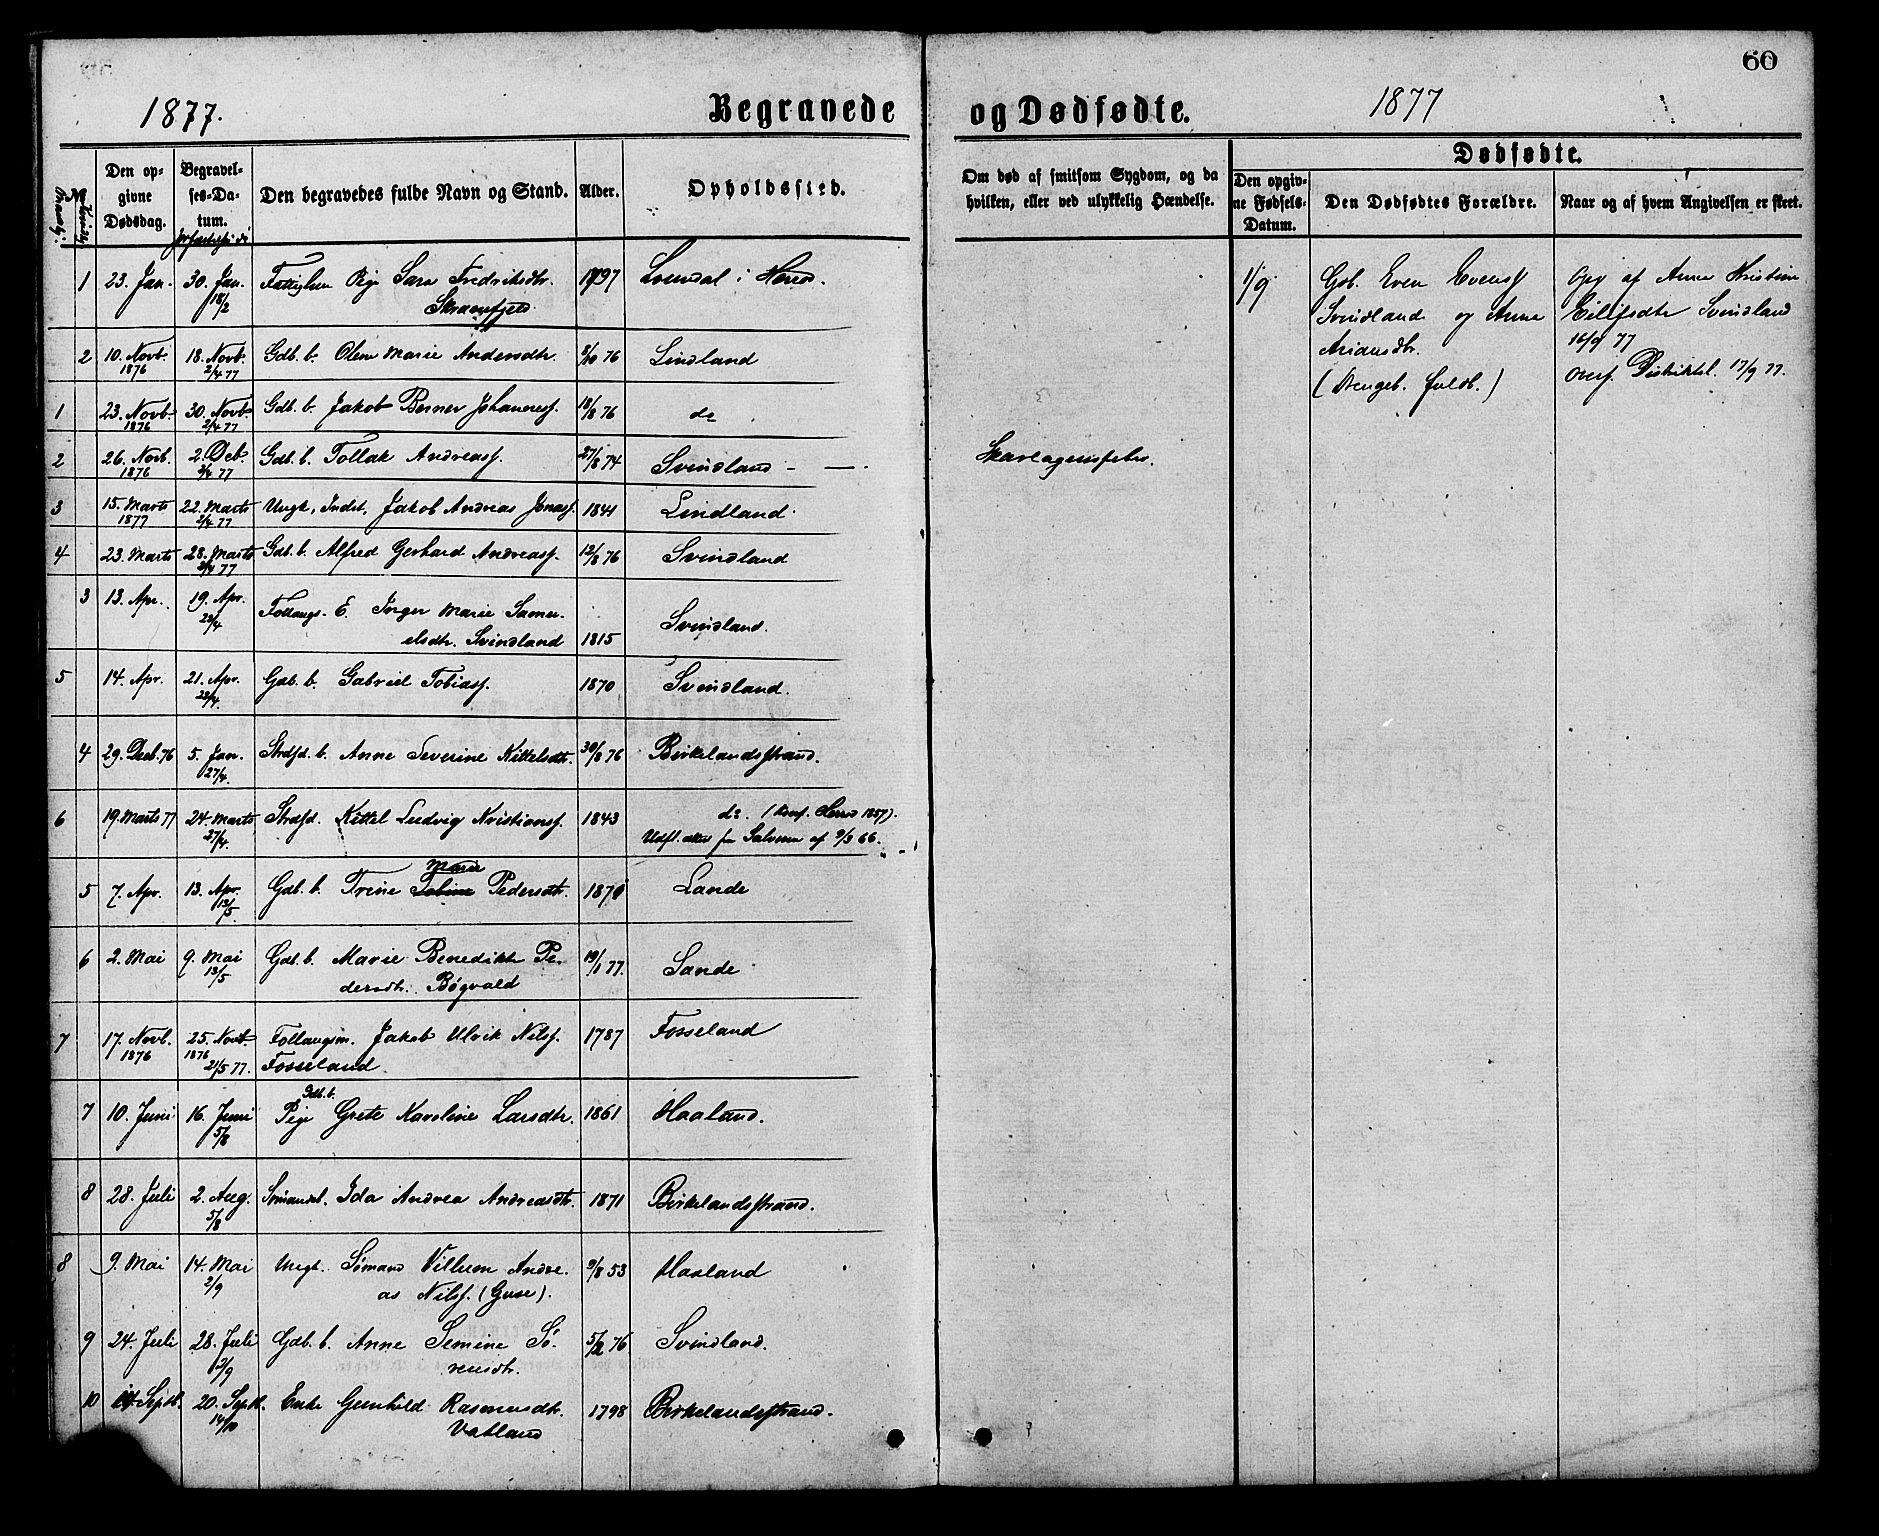 60
1877.
Begravede
og Dødfødte.
1877
Den op-
givne
Dødsdag.
Begravel-
ses-Da-
tum.
Den begravedes fulde Navn og Stand.
Alder.
Opholdssted.
Om død af smitsom Sygdom, og da
hvilken, eller ved ulykkelig Hændelse.
Dødfødte.
Den opgiv-
ne Fødsels-
Datum.
Den Dødfødtes Forældre.
Naar og af hvem Angivelsen er skeet.
1 23. Jan. 30. Jan. Pige Sara Fredriksdtr. 1797 i Herred.
18/2
2 10. Novb. 18. Novb. Gdb. b. Olene Marie Andersdtr. 76 Lindland
1876 2/4 77
1 23. Novb. 30. Novb. Gdb. b. Jakob Berner Johannesf. 18/8 76 do
1876 2/4 77
2 26. Novb. 2. Dcb. Gdb. b. Tollak Andreasf. 27/8 74 Svindland - —.
1876 2/4 77
3 15. Marts 22. Marts Ungk. Indst. Jakob Andreas Jonasf. 1841 Lindland
1877 2/4 77
4 23. Marts 28. Marts Gdb. b. Alfred Gerhard Andreasf. 12/8 76 Svindland
2/4 77
3 13. Apr. 19. Apr. E. Inger Marie Samu-
22/4
elsdtr. Svindland 1815 Svindland.
5 14. Apr. 21. Apr. Gdb. b. Gabriel Tobiasf. 1870 Svindland.
22/4
4 29. Decb. 76 5. Jan. Strdsd. b. Anne Severine Kittelsdtr. 30/8 76 Birkelandsstrand.
27/4
6 19. Marts 77 24. Marts Strdsd. Kittel Ludvig Kristiansf. 1843 do. (Konf. Herred 1857).
27/4 Udfl. af 9/3 66.
Marie
5 7. Apr. 13. Apr. Gdb. b. Trine Pedersdtr. 1870 Lande
13/5
6 2. Mai 9. Mai Gdb. b. Marie Benedikte Pe- 19/1 77. Sande
13/5
dersdtr. Bøgvald
7 17. Novb. 25. Novb. Jakob Ulrik Nilsf. 1787 Fosseland
1876 1876
21/5 77. Fosseland.
Gdb. b.
7 10. Juni 16. Juni Pige Grete Karoline Larsdtr. 1861 Haaland.
5/8
8 28. Juli 2. Aug. Sømandsb. Ida Andrea Andreasdtr. 1871 Birkelandsstrand.
5/8
8 9. Mai 14. Mai Ungk. Sømand Villum Andre- 9/8 53 Haaland
2/9
as Nilsf. (Guse).
9 24. Juli 28. Juli Gdb. b. Anne Semine Sø- 76 Svindland.
2/9
rensdtr.
10 14 Septb. 20. Septb. Enke Gunhild Rasmusdtr. 1798 Birkelandsstrand.
14/10
Vatland
1/9 Gdb. Even Evensf
Svindland og Anne
(Drengeb. fuldb.)
Opg af Anne Kristine
Eilifsdtr Svindland
16/9 77
Overf. Distriktsl. 17/9 77.